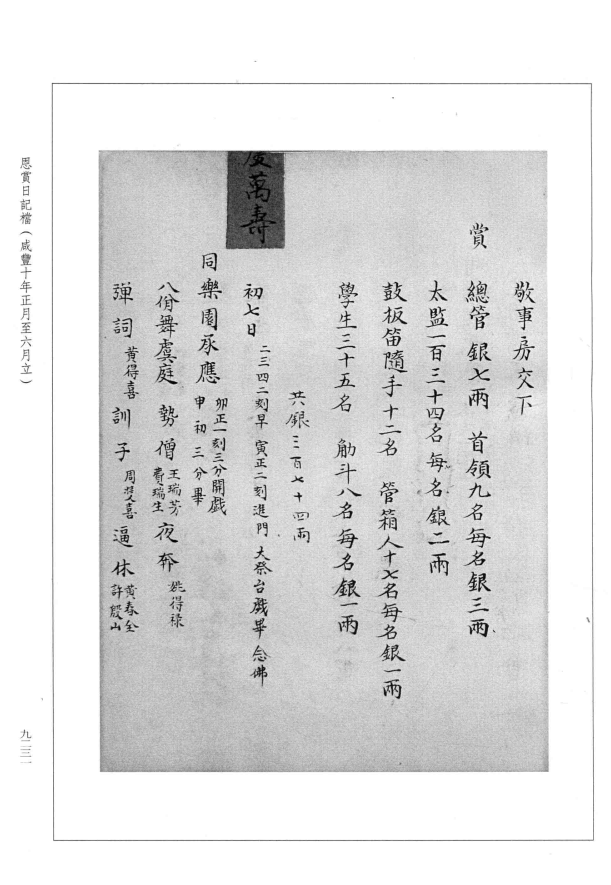 敬事房交下
賞 總管銀七兩 首領九名每名銀三兩
太監一百三十四名每名銀二兩
鼓板笛隨手十二名 管箱人十七名每名銀一兩
學生三十五名 觔斗八名每名銀一兩
共銀三百七十四兩
慶萬壽
初七日 二三四二刻早 寅正二刻進門 大祭台戲畢念佛
同樂園承應 卯正一刻三分開戲
申初三分畢
八佾舞虞庭 勢僧 王瑞芳 費瑞生 夜奔 姚得祿
彈詞 黃得喜 訓子 周雙喜 逼休 黃春全 許殷山
恩賞日記檔(咸豐十年正月至六月立)
九二三一